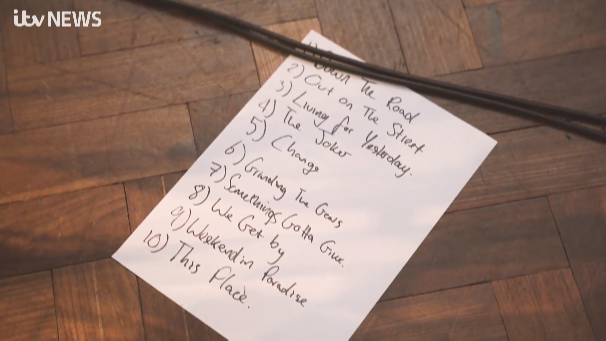 itv NEWS
1) Down The Road
2) Out on The Street
3) Living for Yesterday.
4) The Joker
5) Change
6) Grinding The Gears
7) Somethings Gotta Give.
8) We Get by
9) Weekend in Paradise
10) This Place.